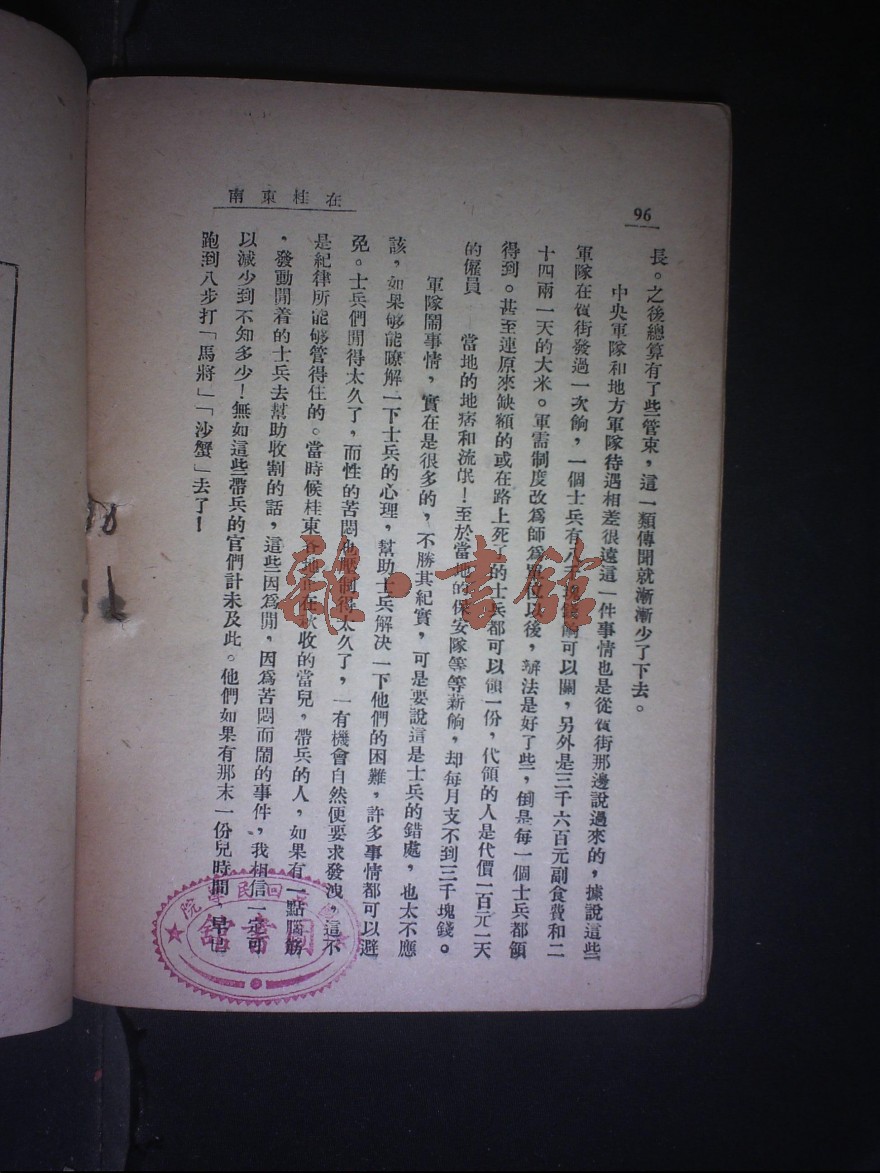 96
在桂東南
長。之後總算有了些管束，這一類傳聞就漸漸少了下去。
中央軍隊和地方軍隊待遇相差很遠這一件事情也是從賀街那邊說過來的，據說這些
軍隊在賀街發過一次餉，一個士兵有八千塊錢餉可以關，另外是三千六百元副食費和二
十四兩一天的大米。軍需制度改爲師爲單位以後，辦法是好了些，倒是每一個士兵都領
得到。甚至連原來缺額的或在路上死了的士兵都可以領一份，代領的人是代價一百元一天
的僱員——當地的地痞和流氓！至於當地的保安隊等等薪餉，却每月支不到三千塊錢。
軍隊鬧事情，實在是很多的，不勝其紀實，可是要說這是士兵的錯處，也太不應
該，如果够能瞭解一下士兵的心理，幫助士兵解决一下他們的困難，許多事情都可以避
免。士兵們閒得太久了，而性的苦悶也壓制得太久了，一有機會自然便要求發洩，這不
是紀律所能够管得住的。當時候桂東各地正在秋收的當兒，帶兵的人，如果有一點腦筋
，發動閒着的士兵去幫助收割的話，這些因爲閒，因爲苦悶而鬧的事件，我相信一定可
以减少到不知多少！無如這些帶兵的官們計未及此。他們如果有那末一份兒時間，早也
跑到八步打「馬將」「沙蟹」去了！
雜·書館
回民學院
圖書館